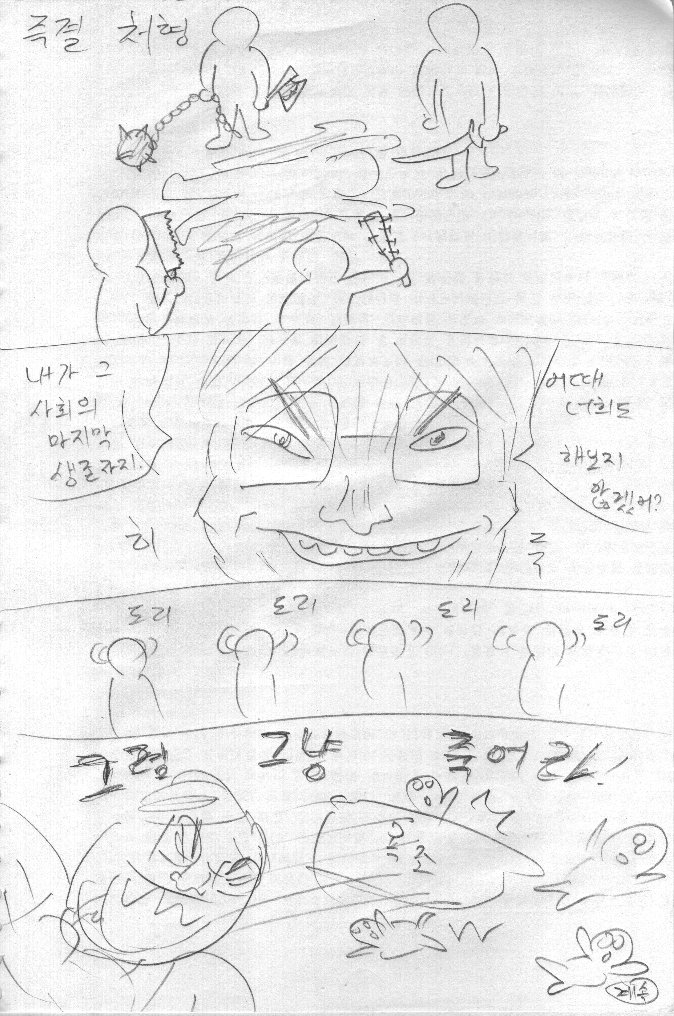 즉결 처형
내가 그
사회의
마지막
생존자지.
어때
너희도
해보지
않겠어?
히
죽
도리
도리
도리
도리
그럼 그냥 죽어라!
폭조
계속